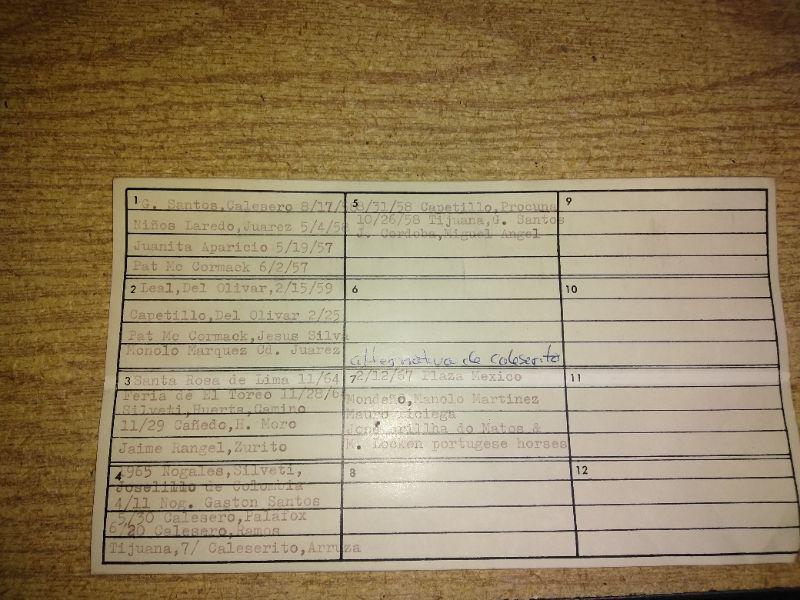 1
G. Santos,Calesero 8/17/58
Niños Laredo,Juarez 5/4/58
Juanita Aparicio 5/19/57
Pat Mc Cormack 6/2/57
2
Leal,Del Olivar,2/15/59
Capetillo,Del Olivar 2/25
Pat Mc Cormack,Jesus Silva
Monolo Marquez Cd. Juarez
3
Santa Rosa de Lima 11/64
Feria de El Toreo 11/28/64
Silveti,Huerta,Camino
11/29 Cañedo,H. Moro
Jaime Rangel,Zurito
4
1965 Nogales,Silveti,
Joselillo de Colombia
4/11 Nog. Gaston Santos
5/30 Calesero,Palafox
6/20 Calesero,Ramos
Tijuana,7/ Caleserito,Arruza
5
8/31/58 Capetillo,Procuna
10/26/58 Tijuana,G. Santos
J. Cordoba,Miguel Angel
6
alternativa de caleserito
7
2/12/67 Plaza Mexico
Mondeño,Manolo Martinez
Mauro Liciega
Jone Brilha do Matos &
M. Locken portugese horses
8
9
10
11
12